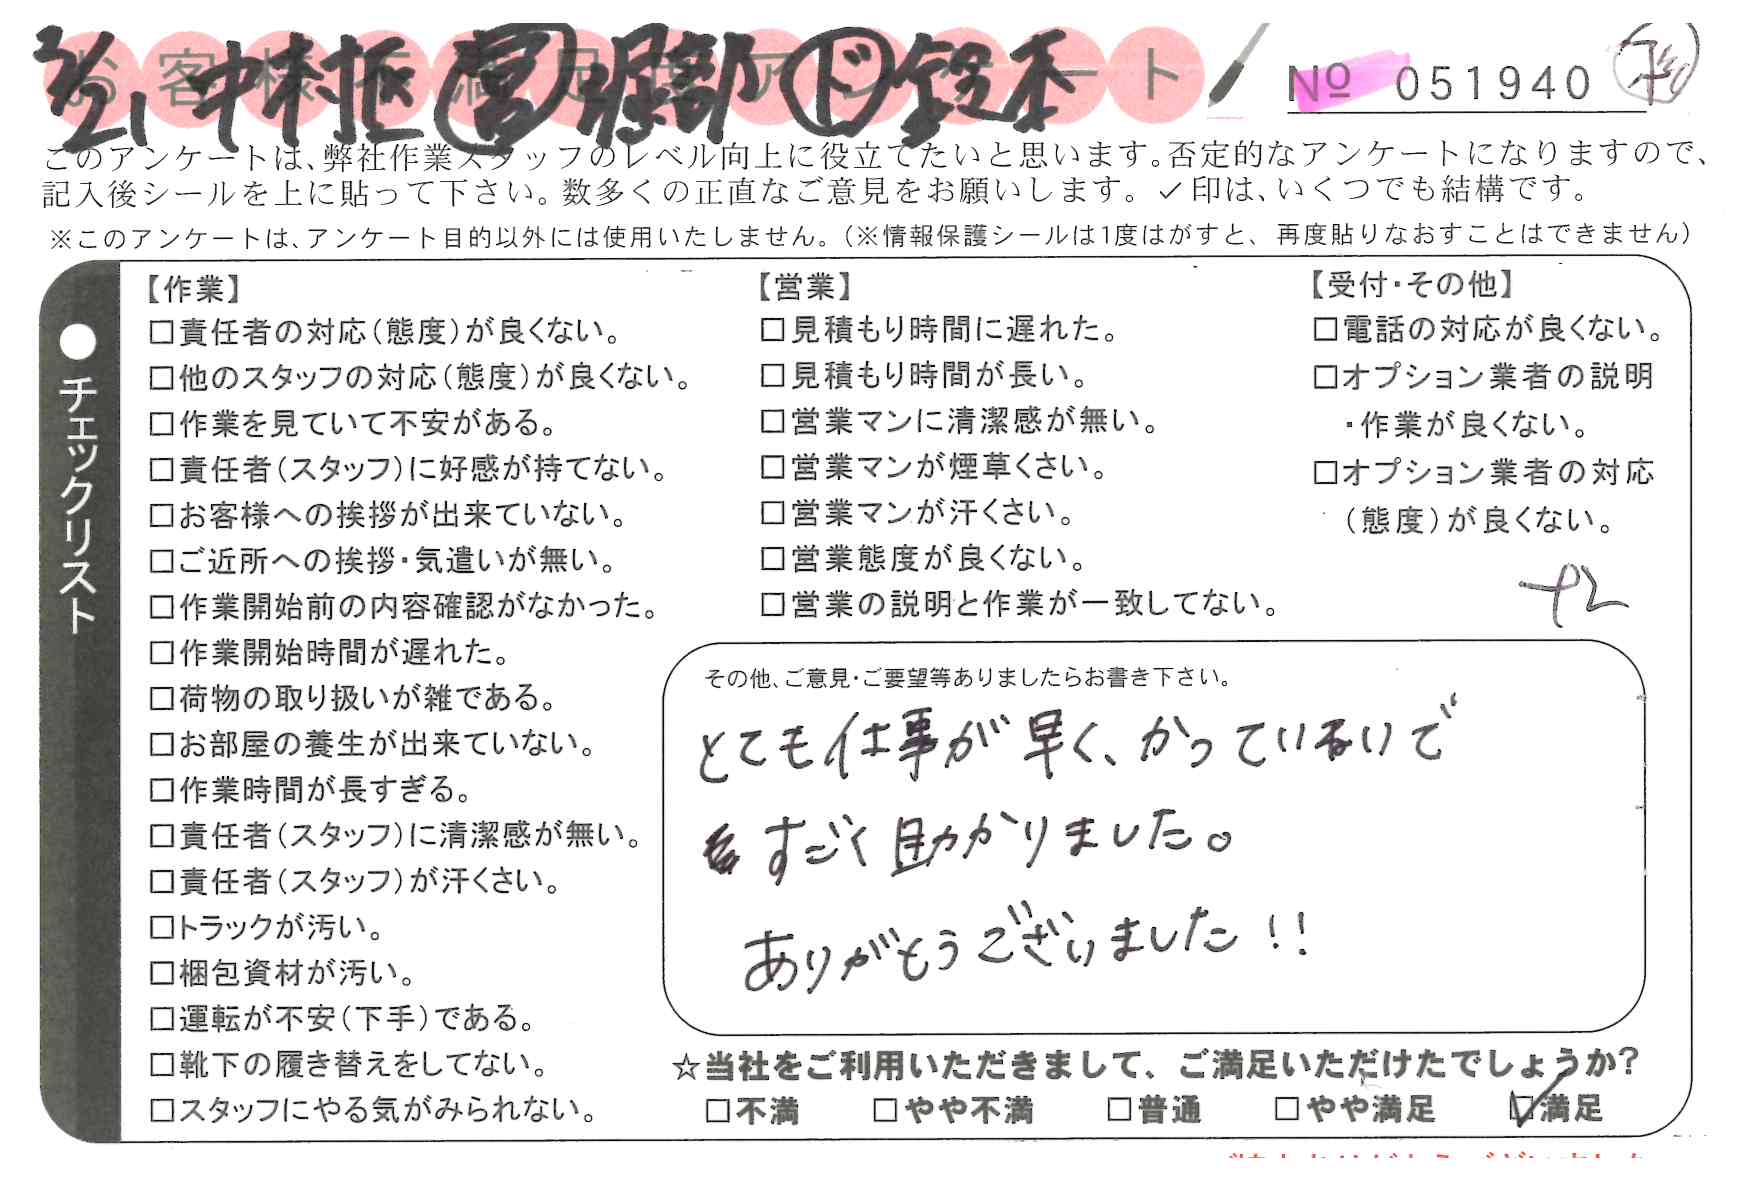 3/21 中村板 営 服部 ド 鈴木
お客様不満足度アンケート
№ 051940
このアンケートは、弊社作業スタッフのレベル向上に役立てたいと思います。否定的なアンケートになりますので、
記入後シールを上に貼って下さい。数多くの正直なご意見をお願いします。✓印は、いくつでも結構です。
※このアンケートは、アンケート目的以外には使用いたしません。(※情報保護シールは1度はがすと、再度貼りなおすことはできません)
●チェックリスト
【作業】
□責任者の対応(態度)が良くない。
□他のスタッフの対応(態度)が良くない。
□作業を見ていて不安がある。
□責任者(スタッフ)に好感が持てない。
□お客様への挨拶が出来ていない。
□ご近所への挨拶・気遣いが無い。
□作業開始前の内容確認がなかった。
□作業開始時間が遅れた。
□荷物の取り扱いが雑である。
□お部屋の養生が出来ていない。
□作業時間が長すぎる。
□責任者(スタッフ)に清潔感が無い。
□責任者(スタッフ)が汗くさい。
□トラックが汚い。
□梱包資材が汚い。
□運転が不安(下手)である。
□靴下の履き替えをしてない。
□スタッフにやる気がみられない。
【営業】
□見積もり時間に遅れた。
□見積もり時間が長い。
□営業マンに清潔感が無い。
□営業マンが煙草くさい。
□営業マンが汗くさい。
□営業態度が良くない。
□営業の説明と作業が一致してない。
【受付・その他】
□電話の対応が良くない。
□オプション業者の説明
・作業が良くない。
□オプション業者の対応
(態度)が良くない。
+2
その他、ご意見・ご要望等ありましたらお書き下さい。
とても仕事が早く、かつていねいで
すごく助かりました。
ありがとうございました!!
☆当社をご利用いただきまして、ご満足いただけたでしょうか?
□不満 □やや不満 □普通 □やや満足 ☑満足